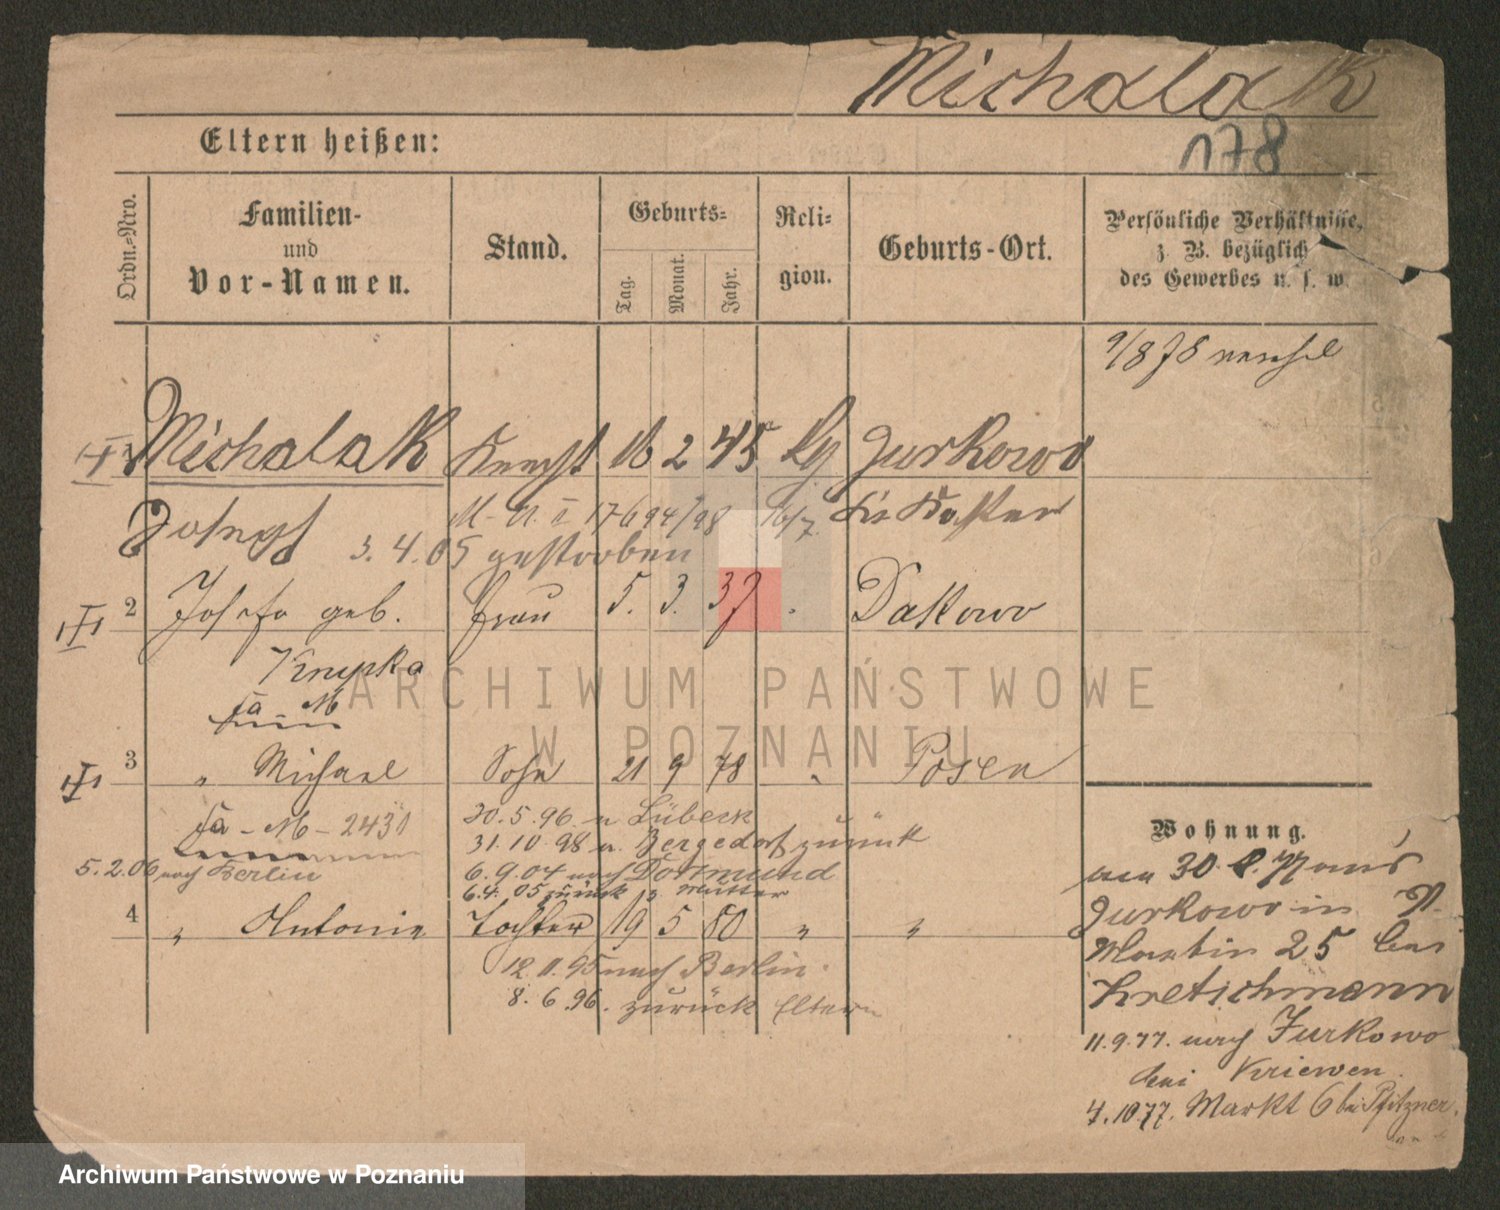 Michalak
178
Eltern heißen:
Ordn.-Nro.
Familien-
und
Vor-Namen.
Stand.
Geburts-
Tag.
Monat.
Jahr.
Reli-
gion.
Geburts-Ort.
Persönliche Verhältnisse,
z. B. bezüglich
des Gewerbes u. s. w.
9/8 78
Michalak Knecht 16 2 45 Jurkowo
Joseph Kr Kosten
3. 4. 05 gestorben
2 Josefa geb. Frau 5. 3. 37 Dakowo
Krupka
Fa - M
3 " Michael Sohn 21 9 78 " Posen
Fa - M - 2431
30. 5. 96. n Lübeck
31. 10. 98 v. Bergedorf zurück
5. 2. 06 nach Berlin
6. 9. 04 nach Dortmund
6. 4. 05 zurück z. Mutter
4 " Antonie Tochter 19 5 80 " "
12. 11. 95 nach Berlin.
8. 6. 96. zurück Eltern
Wohnung.
30
Jurkowo in
Martin 25 bei
Kretschmann
11. 9. 77. nach Jurkowo
bei Kriewen.
4. 10. 77. Markt 6 bei Pfitzner
ARCHIWUM PAŃSTWOWE
W POZNANIU
Archiwum Państwowe w Poznaniu